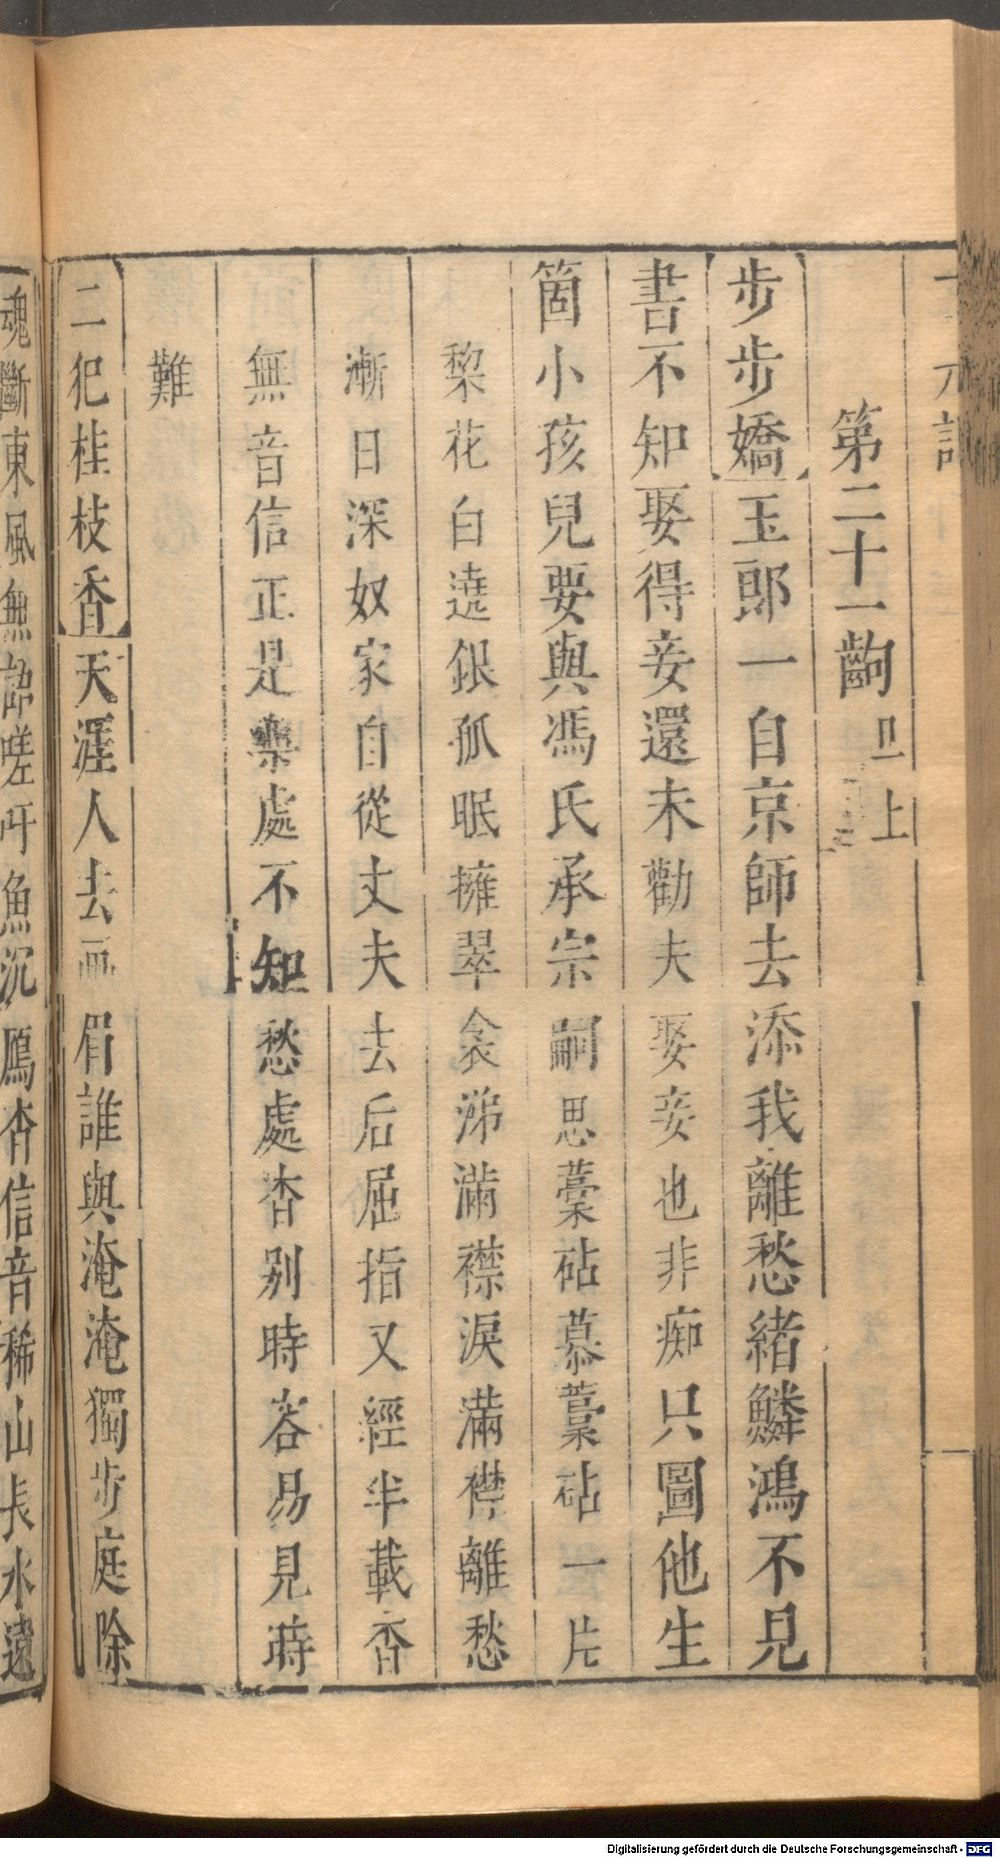 第二十一齣 旦上
步步嬌玉郎一自京師去添我離愁緒鱗鴻不見
書不知娶得妾還未勸夫娶妾也非痴只圖他生
箇小孩兒要與馮氏承宗嗣思藁砧慕藁砧一片
梨花白遶銀孤眠擁翠衾涕滿襟淚滿襟離愁
漸日深奴家自從丈夫去后屈指又經半載杳
無音信正是樂處不知愁處杳别時容易見時
難
二犯桂枝香天涯人去画眉誰與淹淹獨步庭除
魂斷東風無語嗟吁魚沉鴈杳信音稀山長水遠
Digitalisierung gefördert durch die Deutsche Forschungsgemeinschaft - DFG